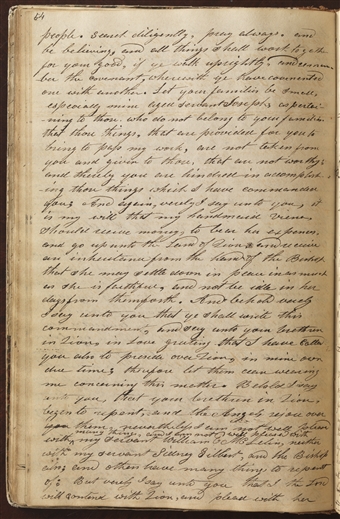 64
people. search diligently, pray always and
be believing, and all things shall work together
for your good, if ye walk uprightly and remem
ber the covenant, wherewith ye have covenanted
one with another. Let your families be small,
especially mine aged servant Joseph, as pertain
ning to those who do not belong to your families
that those things, that are provided for you to
bring to pass my work, are not taken from
you and given to those, that are not worthy,
and thereby you are hindered in accomplish
ing those things which I have commanded
you, And again, verely I say unto you, it
is my will that my handmaid Vienna
should receive money to bear her expences
and go up unto the Land of Zion & and receive
an inheritance from the hand of the Bishop
that she may settle down in peace in as much
as she is faithful, and not be idle in her
days from thenceforth. And behold verely
I say unto you that ye shall write this
commandment, and say unto your brethren
in Zion, in love greeting that I have called
you also to preside over Zion in mine own
due time; therefore let them cease wearying
me concerning this matter. Behold I say
unto you, that your brethren in Zion,
begin to repent, and the Angels rejoice over
them; nevertheless I am not well pleased
many things, and I am not well pleased with
with my servant William E. McLelin, neither
with my servant Sidney Gilbert, and the Bishop
also; and others have many things to repent
of; But verely I say unto you that I the Lord
will contend with Zion, and plead with her